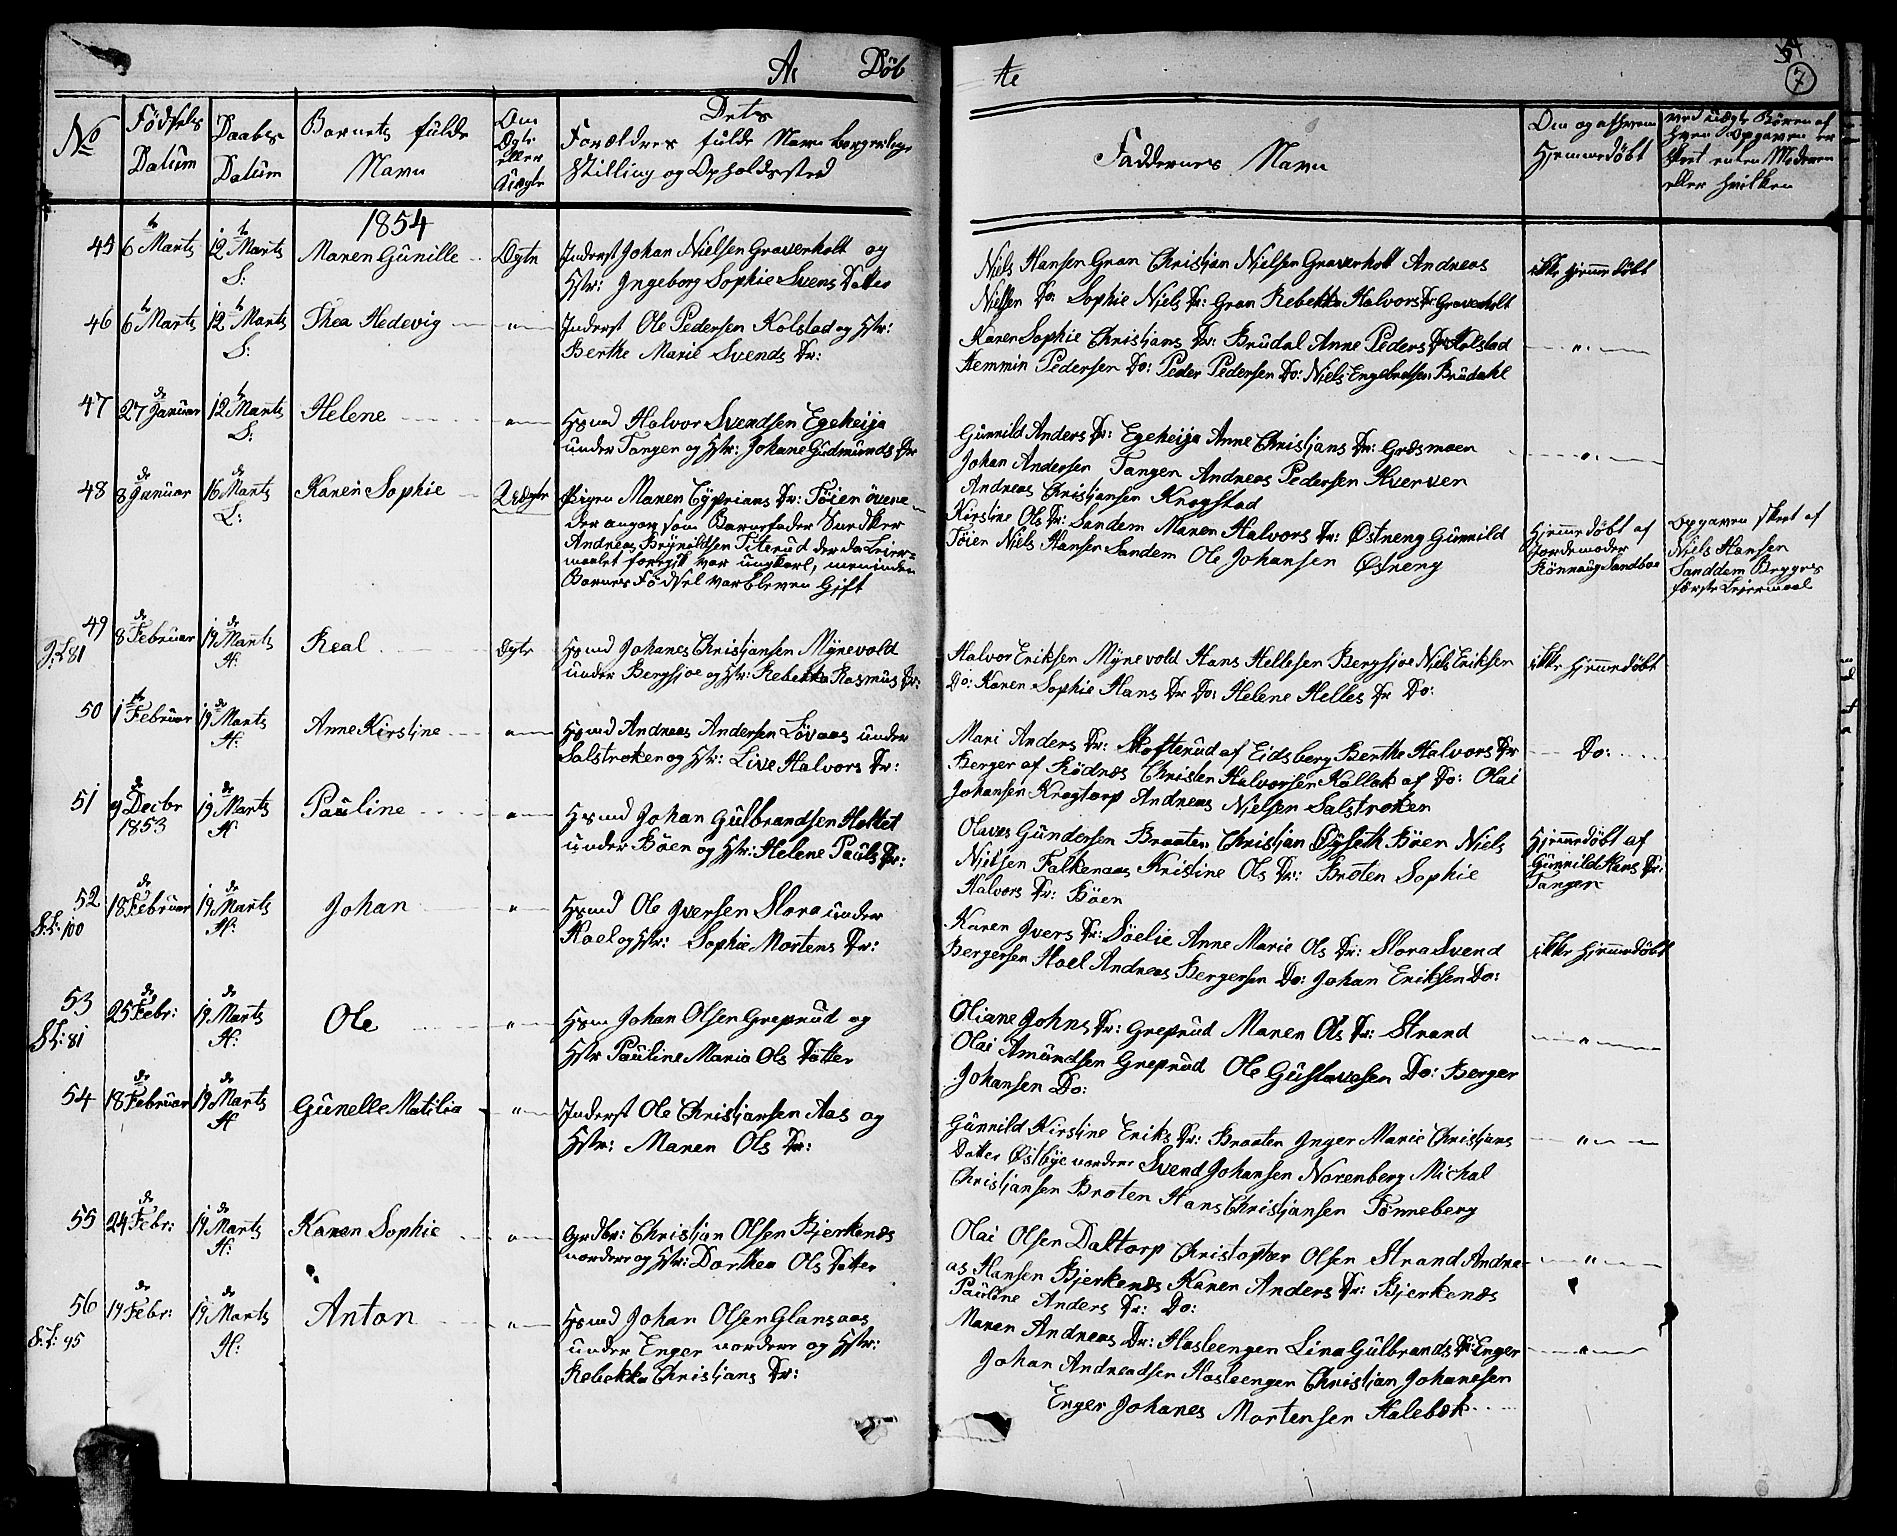 Ar Døb
Ar
54
7
No
Fødsels Datum
Daabs Datum
Barnets fulde Navn
Om Ægte eller Uægte
Dets
Forældres fulde Navn borgerlige
Stilling og Opholdssted
Faddernes Navn
Om og af hvem
Hjemmedøbt
ved uægte Børn af
hvem Opgaven er
skeet enten Moderen
eller hvilken
1854
45 6te Marts 12te Marts S: Maren Gunille Ægte Inderst Johan Nielsen Graverholt og
Hstr: Ingeborg Sophie Svens Datter
Niels Hansen Gran Christjan Nielsen Graverholt Andreas
Nielsen Do: Sophie Niels Dr: Gran Rebekka Halvors Dr Graverholt
ikke Hjemmedøbt
46 6te Marts 12te Marts S: Thea Hedevig " Inderst Ole Pedersen Kolstad og Hstr:
Berthe Marie Svends Dr:
Karen Sophie Christjans Dr: Brudal Anne Peders Dr Kolstad
Hemmin Pedersen Do: Peder Pedersen Do: Niels Engebretsen Brudahl
"
47 27de Januar 12te Marts S: Helene " Hsmd Halvor Svendsen Egeheija
under Tangen og Hstr: Johane Gudmunds Dr
Gunnild Anders Dr: Egeheija Anne Christjans Dr: Græsmoen
Johan Andersen Tangen Andreas Pedersen Kverven
Andreas Christjansen Krogstad
"
48 8de Januar 16de Marts L: Karen Sophie Uægte Pigen Maren Cyprians Dr: Tøien øvene
der angav som Barnefader Snedker
Andreas Brynildsen Titerud der da Leier-
maalet foregik var ungkarl, men inden
Barnets Fødsel var bleven Gift
Kirstine Ols Dr: Sandem Maren Halvors Dr: Østneng Gunnild
Tøien Niels Hansen Sandem Ole Johansen Østneng
Hjemmedøbt af
Jordemoder
Rønnaug Sandboe
Opgaven skeet af
Niels Hansen
Sanddem Begges
første Leiermaal
49 8de Februar 19de Marts H: Real Ægte Hsmd Johanes Christjansen Mÿrevold
under Bergsjøe og Hstr: Rebekka Rasmus Dr:
81
Halvor Eriksen Mÿrevold Hans Hellesen Bergsjoe Niels Eriksen
Do: Karen Sophie Hans Dr Do: Helene Helles Dr Do:
ikke Hjemmedøbt
50 1te Februar 19de Marts H: Anne Kirstine " Hsmd Andreas Andersen Løvaas under
Salstroken og Hstr: Live Halvors Dr:
Mari Anders Dr: Skofterud af Eidsberg Berthe Halvors Dr
Berger af Rødnæs Christen Halvorsen Kallak af Do: Olai
Johansen Krogtorp Andreas Nielsen Salstroken
Do:
51 9de Decbr 1853 19de Marts H Pauline " Hsmd Johan Gulbrandsen Holtet
under Bøen og Hstr: Helene Pauls Dr:
Olaves Gundersen Braaten Christjan Øÿseth Bøen Niels
Nielsen Falkenaas Kristine Ols Dr: Broten Sophie
Halvors Dr: Bøen
Hjemmedøbt af
Gunnild Hans Dr:
Tangen
52 18de Februar 19de Marts H: Johan " Hsmd Ole Iversen Slora under
Hoel og Hstr: Sophie Mortens Dr:
100
Karen Ivers Dr: Søelie Anne Marie Ols Dr: Slora Svend
Bergersen Hoel Andreas Bergersen Do: Johan Eriksen Do:
ikke Hjemmedøbt
53 25de Febr: 19de Marts H: Ole " Hsm Johan Olsen Greprud og
Hstr Pauline Maria Ols Datter
81
Oliane Johns Dr: Greprud Maren Ols Dr: Strand
Olai Amundsen Greprud Ole Gustavesen Do: Berger
Johansen Do:
"
54 18de Februar 19de Marts H Gunelle Matilia " Inderst Ole Christjansen Aas og
Hstr: Maren Ols Dr:
Gunnild Kirstine Eriks Dr: Braaten Inger Marie Christjans
Datter Østbÿe nordene Svend Johansen Norenberg Michal
Christjansen Broten Hans Christjansen Tønneberg
"
55 24de Febr: 19de Marts H: Karen Sophie " Grdbr: Christjan Olsen Bjerkenæs
nordere og Hstr: Dorthea Ols Datter
Olai Olsen Daltorp Christopher Olsen Strand Andre-
as Hansen Bjerkenæs Karen Anders Dr: Bjerkenæs
Pauline Anders Dr: Do:
"
56 19de Febr: 19de Marts H: Anton " Hsmd Johan Olsen Glansaas
under Enger nordere og Hstr:
Rebekka Christjans Dr:
95
Maren Andreas Dr: Hasleengen Lina Gulbrands Dr: Enger
Johan Andreadsen Hasleengen Christjan Johanesen
Enger Johanes Mortensen Halebæk
"